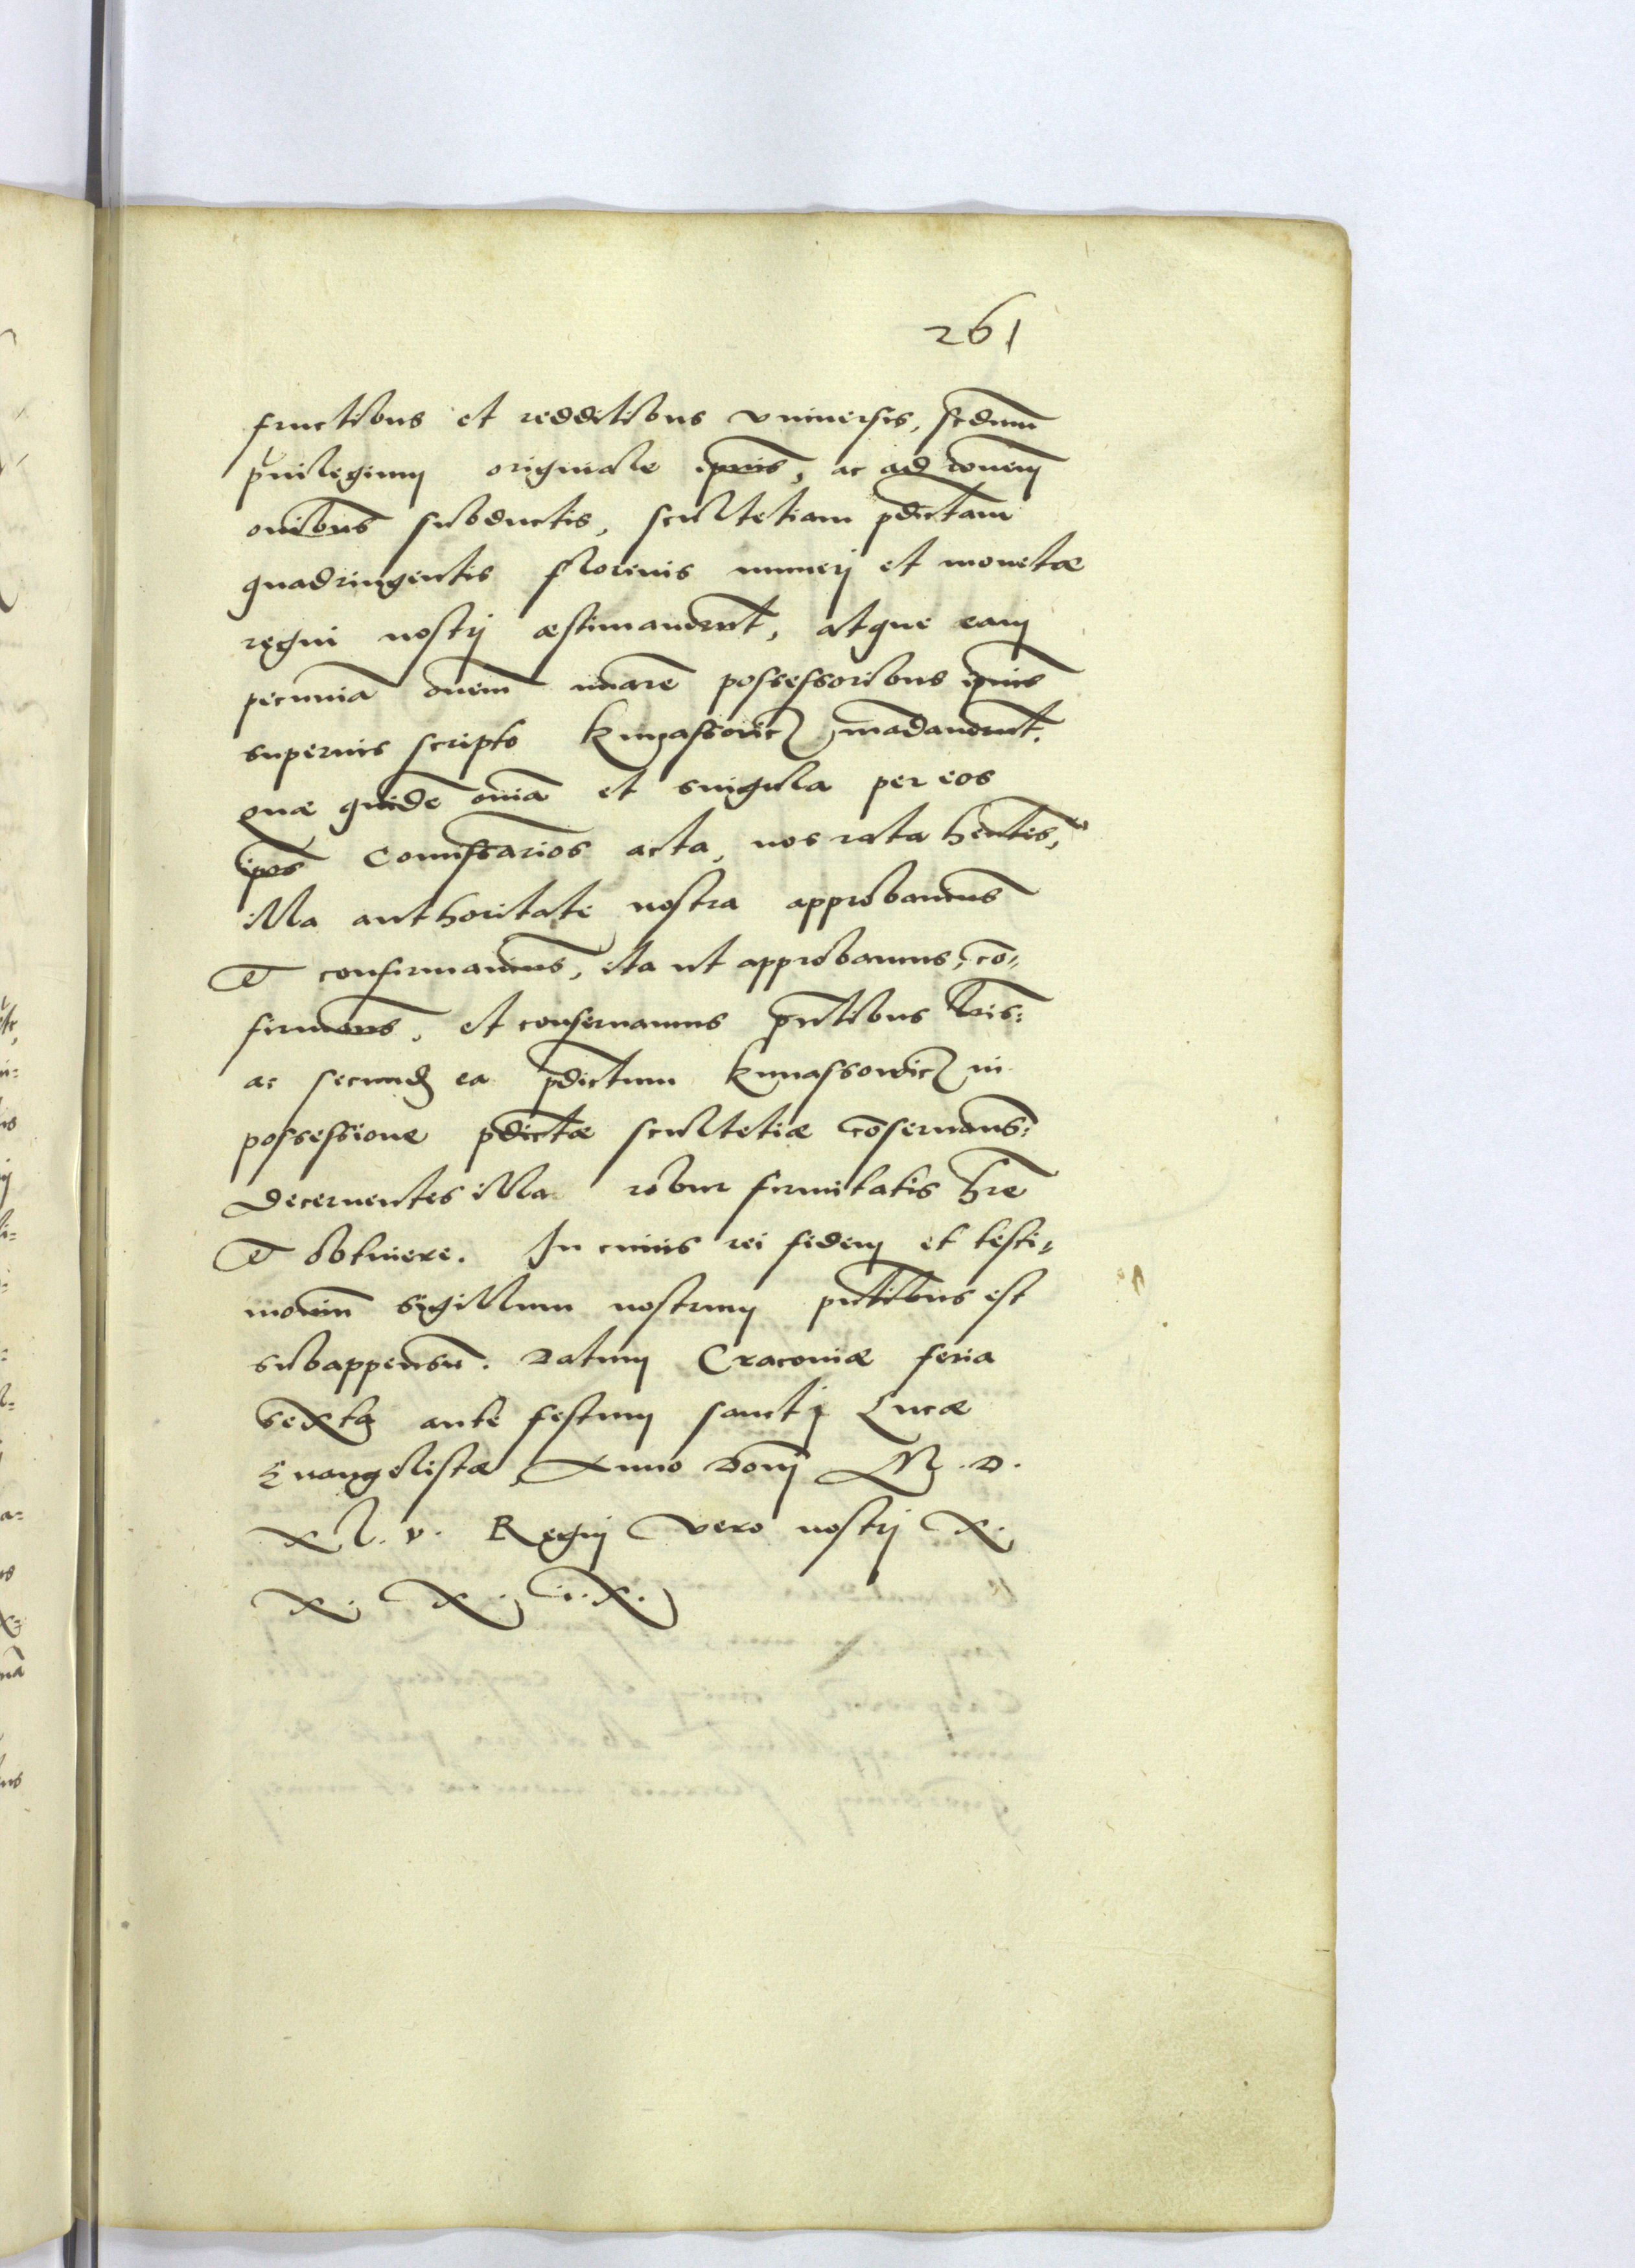 261
fructibus et redditibus vniuersis, scdum̄
priuilegium originale ipius̄, ac ad ronem̄
oiībus subductis, scultetiam pdictam̄
quadringentis florenis numeri et monetæ
regni nostri æstimauerut̄, atque eam
pecuniā omem̄ nuare̅ possessoribus ipius̄
superius scripto Kunassowicz madauerut̄.
quæ quidē oīa et singula per eos
ipos̄ Comissarios̄ acta, nos rata hentes̄,
illa authoritate nostra approbamus̄
Et confirmamus̄, ita ut approbamus, cō„
firmams̄, et conseruamus pn̄tibus lris̄:
ac secund ea pdictum̄ Kunassowicz in
possessione pdictǣ scultetiæ cōseruams̄:
Decernentes illa robur firmitatis hr̄e
Et obtinere. In cuius rei fidem et testi„
monium̄ sigillum nostrum pn̄tibus est
subappensū. Datum Cracouiæ feria
Sexta ante festum sancti Lucæ
Euangelistæ, Anno Domī M. D.
XL. v. Regni vero nostri X.
X. X. i. X.